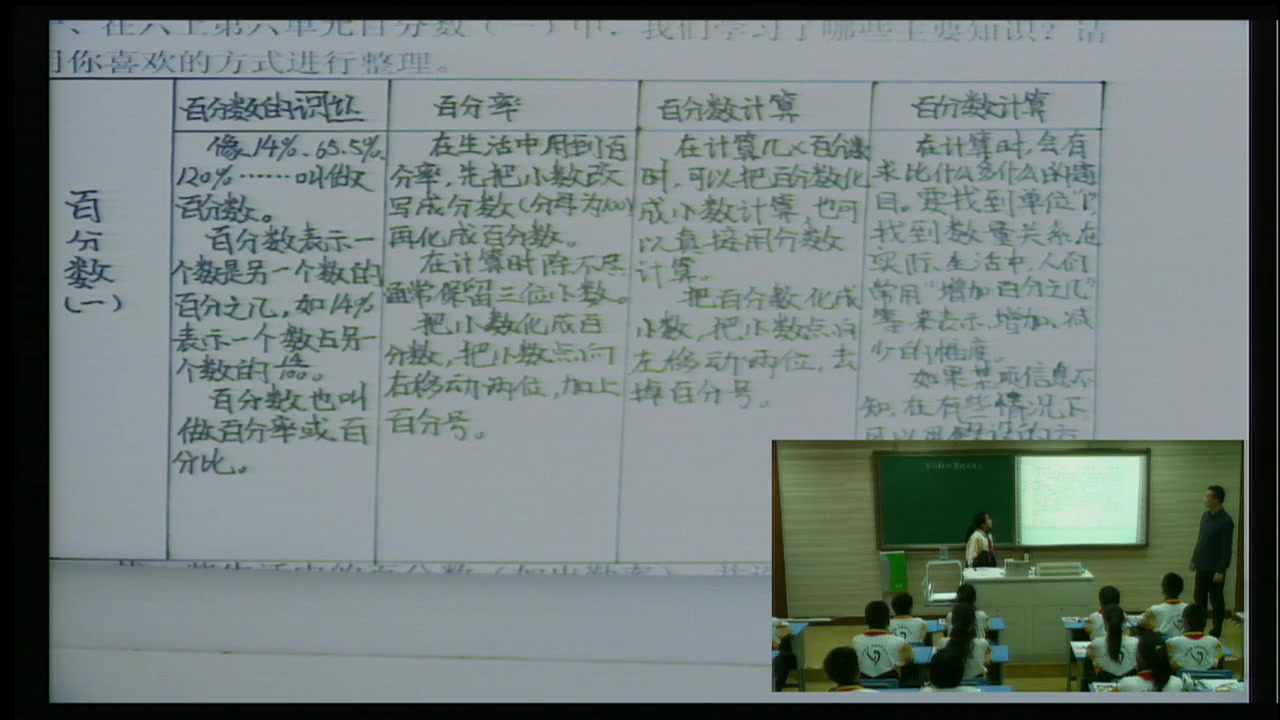 、在六上第六单元百分数（一）中，我们学习了哪些主要知识？请
用你喜欢的方式进行整理。
百
分
数
（一）
百分数的认识
像14%、65.5%、
120%……叫做
百分数。
百分数表示一
个数是另一个数的
百分之几，如14%
表示一个数占另一
个数的
百分数也叫
做百分率或百
分比。
百分率
在生活中用到百
分率，先把小数改
写成分数（分母为100）
再化成百分数。
在计算时除不尽
通常保留三位小数。
把小数化成百
分数，把小数点向
右移动两位，加上
百分号。
百分数计算
在计算几×百分数
时，可以把百分数化
成小数计算，也可
以直接用分数
计算。
把百分数化成
小数，把小数点向
左移动两位，去
掉百分号。
百分数计算
在计算时，会有
求比什么多什么的题
目。要找到单位“1”，
找到数量关系在
实际生活中，人们
常用“增加百分之几”
等来表示增加、减
少的幅度。
如果某项信息不
知，在有些情况下
可以用假设的方